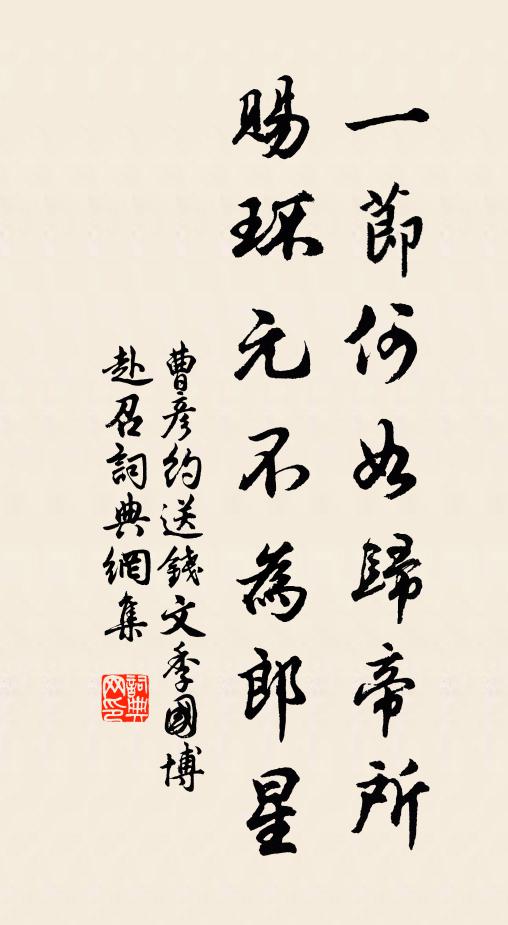 一節何如歸帝所
賜環元不為郎星
曹彥約送錢文季國博
赴召詞典網集
詞典網印